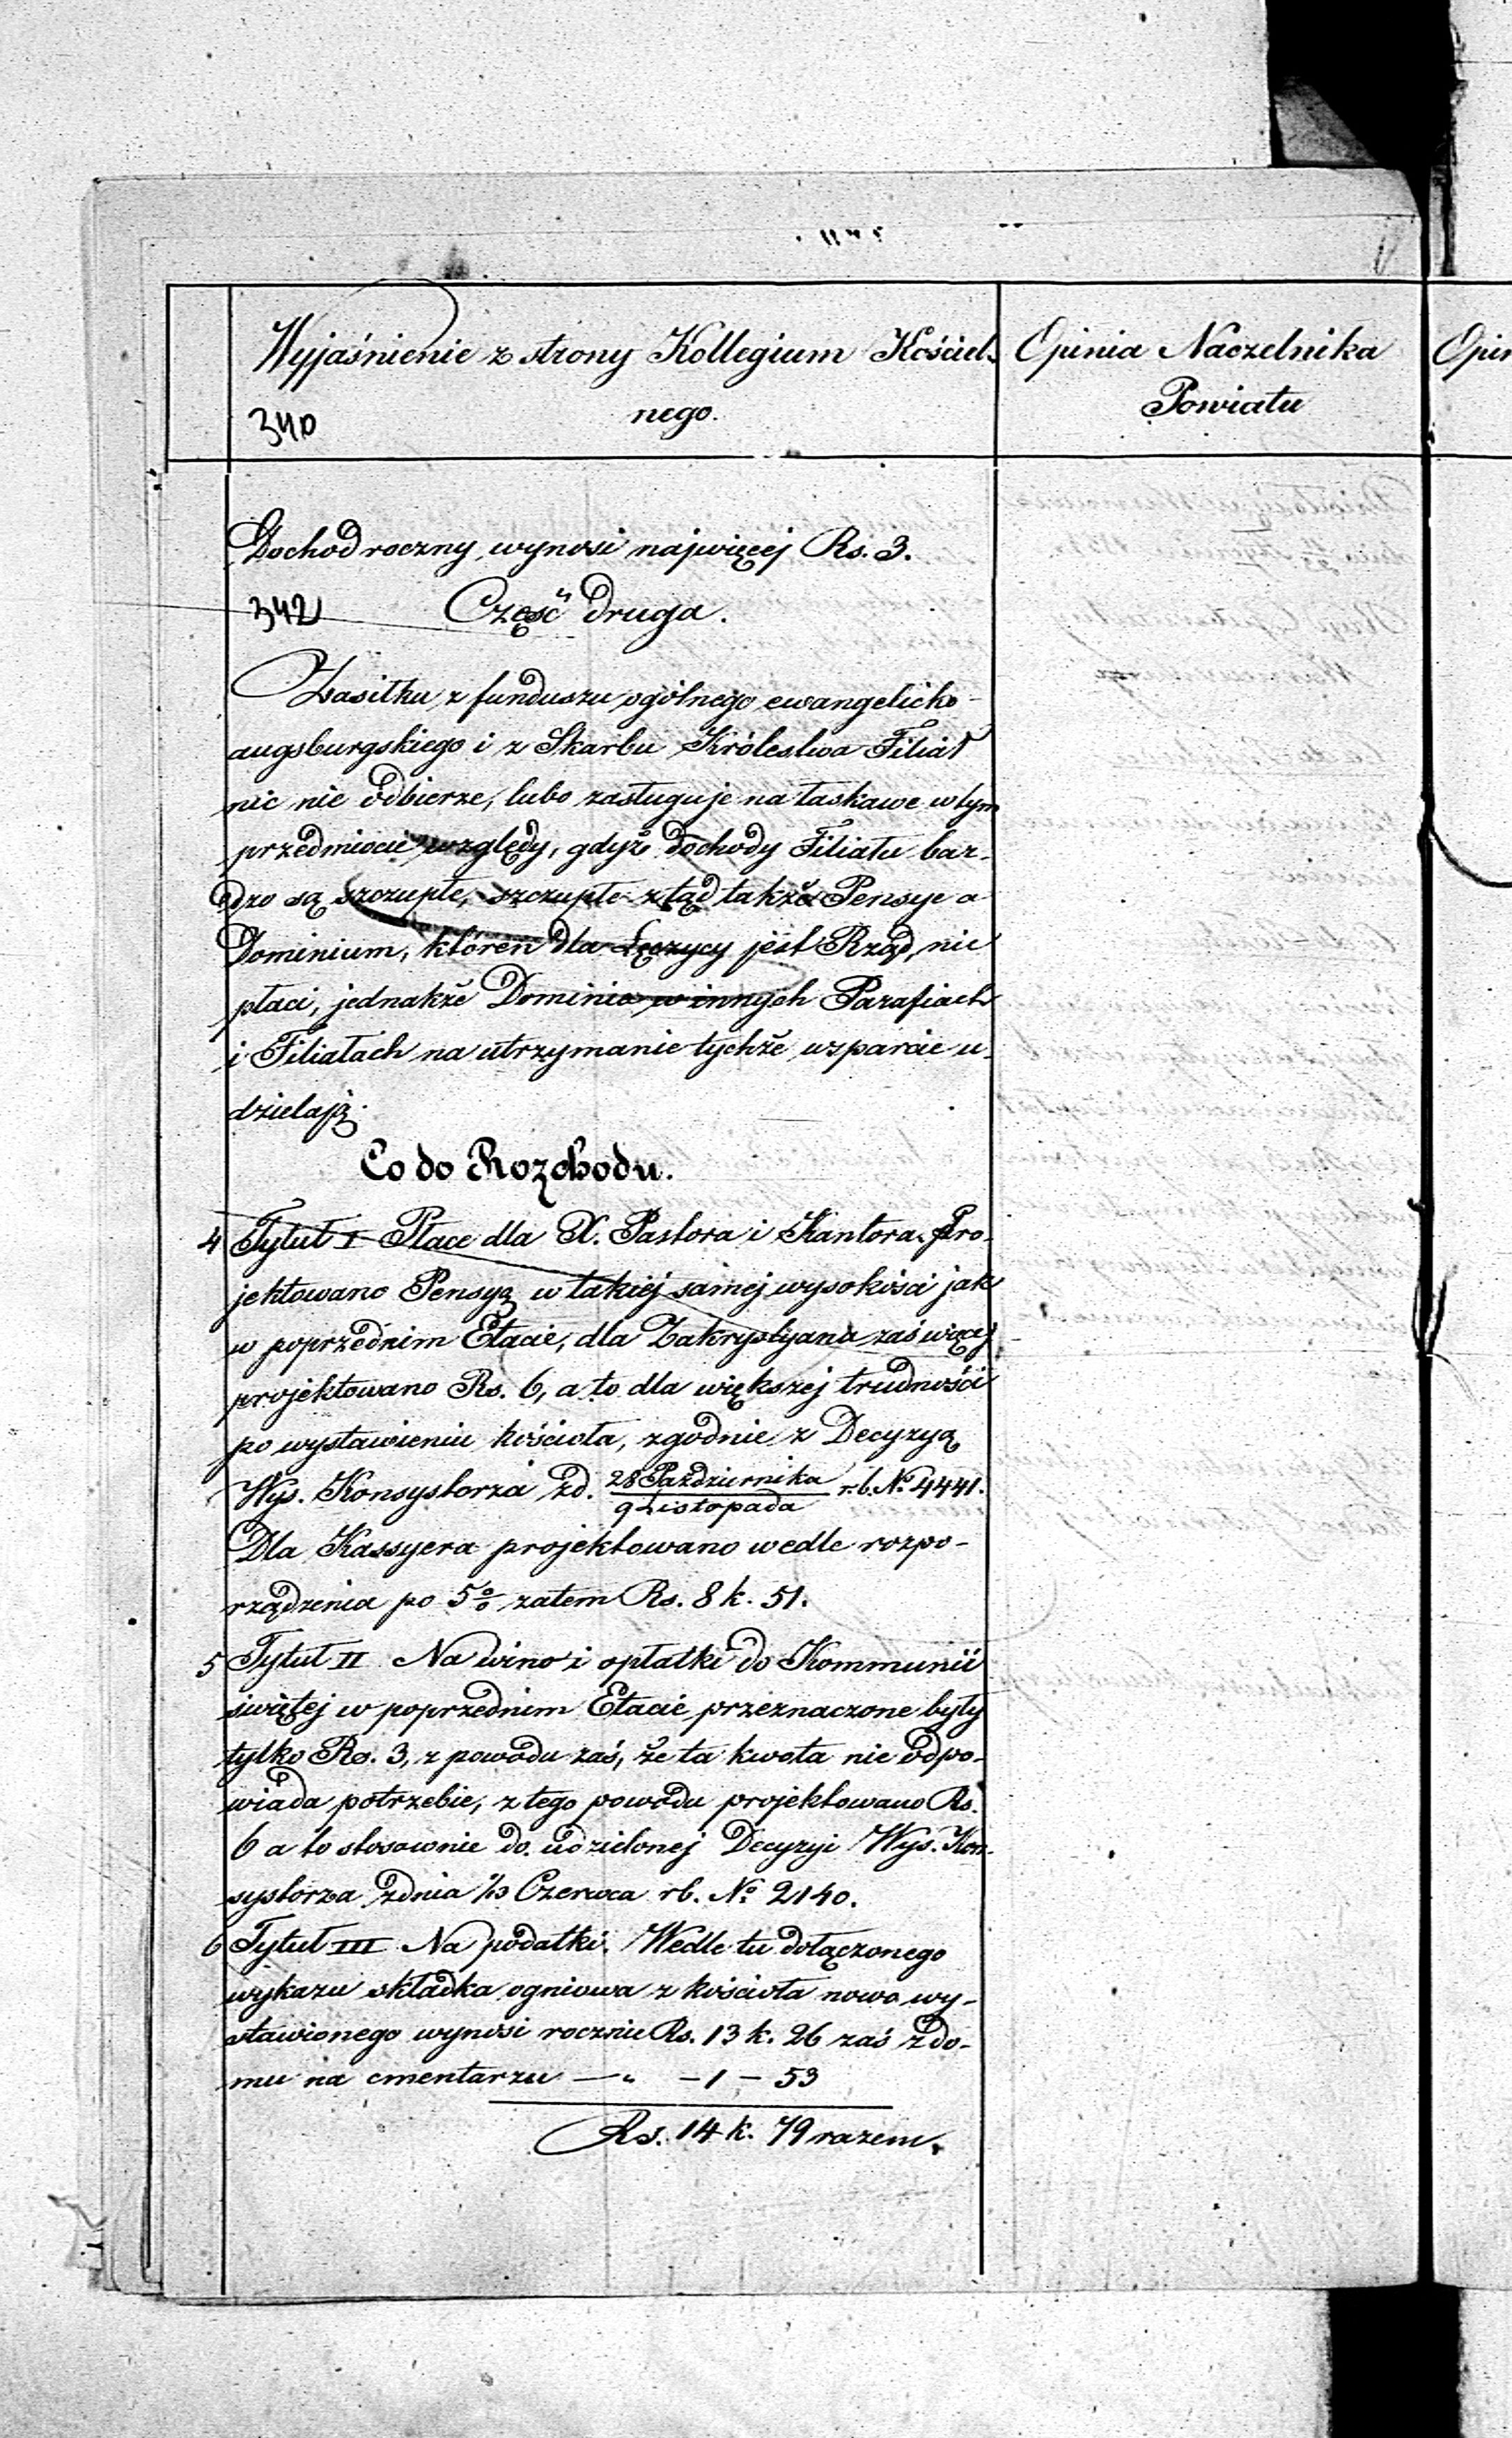 Wyjaśnienie z strony Kollegium Kościel-
nego.
340
Opinia Naczelnika
Powiatu
Opin
Dochod roczny wynosi najwięcej Rs. 3.
342
Część druga.
Zasiłku z funduszu ogólnego ewangelicko-
augsburgskiego i z Skarbu Królestwa Filiał
nic nie odbierze, lubo zasługuje na łaskawe w tym
przedmiocie względy, gdyż dochody Filiału bar-
dzo są szczupłe, szczupłe ztąd także Pensye a
Dominium, któren dla Łęczycy jest Rząd, nic
płaci, jednakże Dominia w innych Parafiach
i Filiałach na utrzymanie tychże wsparcie u-
dzielają.
Co do Rozchodu.
4 Tytuł I Płace dla X. Pastora i Kantora Pro-
jektowano Pensyą w takiej samej wysokości jak
w poprzednim Etacie, dla Zakrystyana zaś więcej
projektowano Rs. 6, a to dla większej trudności
po wystawieniu kościoła, zgodnie z Decyzyą
Wys. Konsystorza zd. 28 Października / 9 Listopada r.b. No 4441.
Dla Kassyera projektowano wedle rozpo-
rządzenia po 5% zatem Rs. 8 k. 51.
5 Tytuł II Na wino i opłatki do Kommunii
świętej w poprzednim Etacie przeznaczone były
tylko Rs. 3, z powodu zaś, że ta kwota nie odpo-
wiada potrzebie, z tego powodu projektowano Rs.
6 a to stosownie do udzielonej Decyzyi Wys. Kon-
systorza zdnia Czerwca rb. No 2140.
6 Tytuł III Na podatki. Wedle tu dołączonego
wykazu składka ogniowa z kościoła nowo wy-
stawionego wynosi rocznie Rs. 13 k. 26 zaś z do-
mu na cmentarzu — „ - 1 - 53
Rs. 14 k. 79 razem.